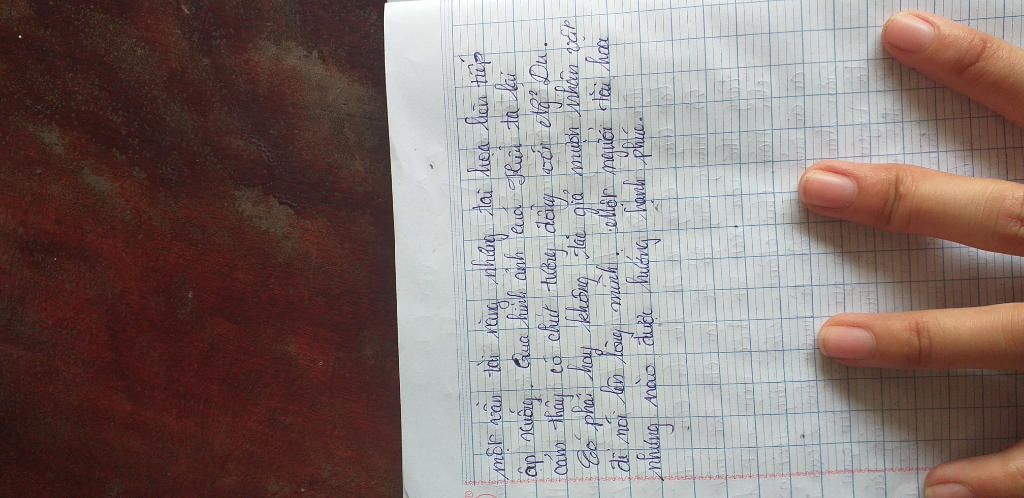 một nền tài năng nhưng tai họa liên tiếp
ập xuống. Qua hình ảnh của Hữu ta lại
cảm thấy có chút tương đồng với Ng² Du.
Có phải hay không tác giả mượn nhân vật
để nói lên lòng mình. Một người tài hoa
nhưng nào được hưởng hạnh phúc.